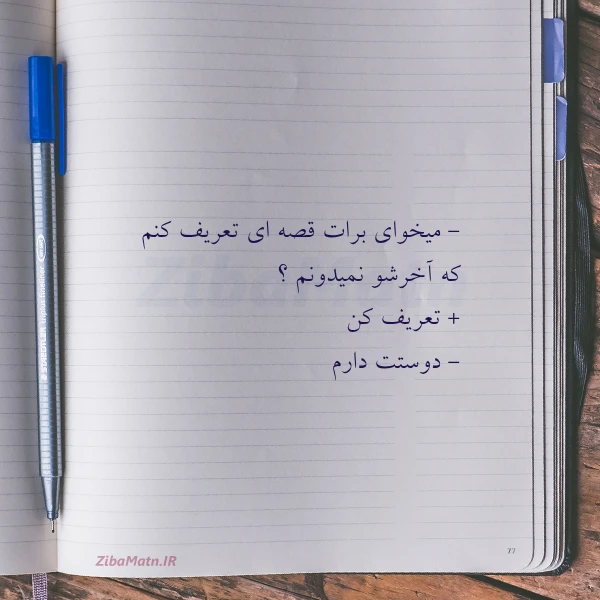 – میخوای برات قصه ای تعریف کنم
که آخرشو نمیدونم ؟
+ تعریف کن
– دوستت دارم
ZibaMatn.IR